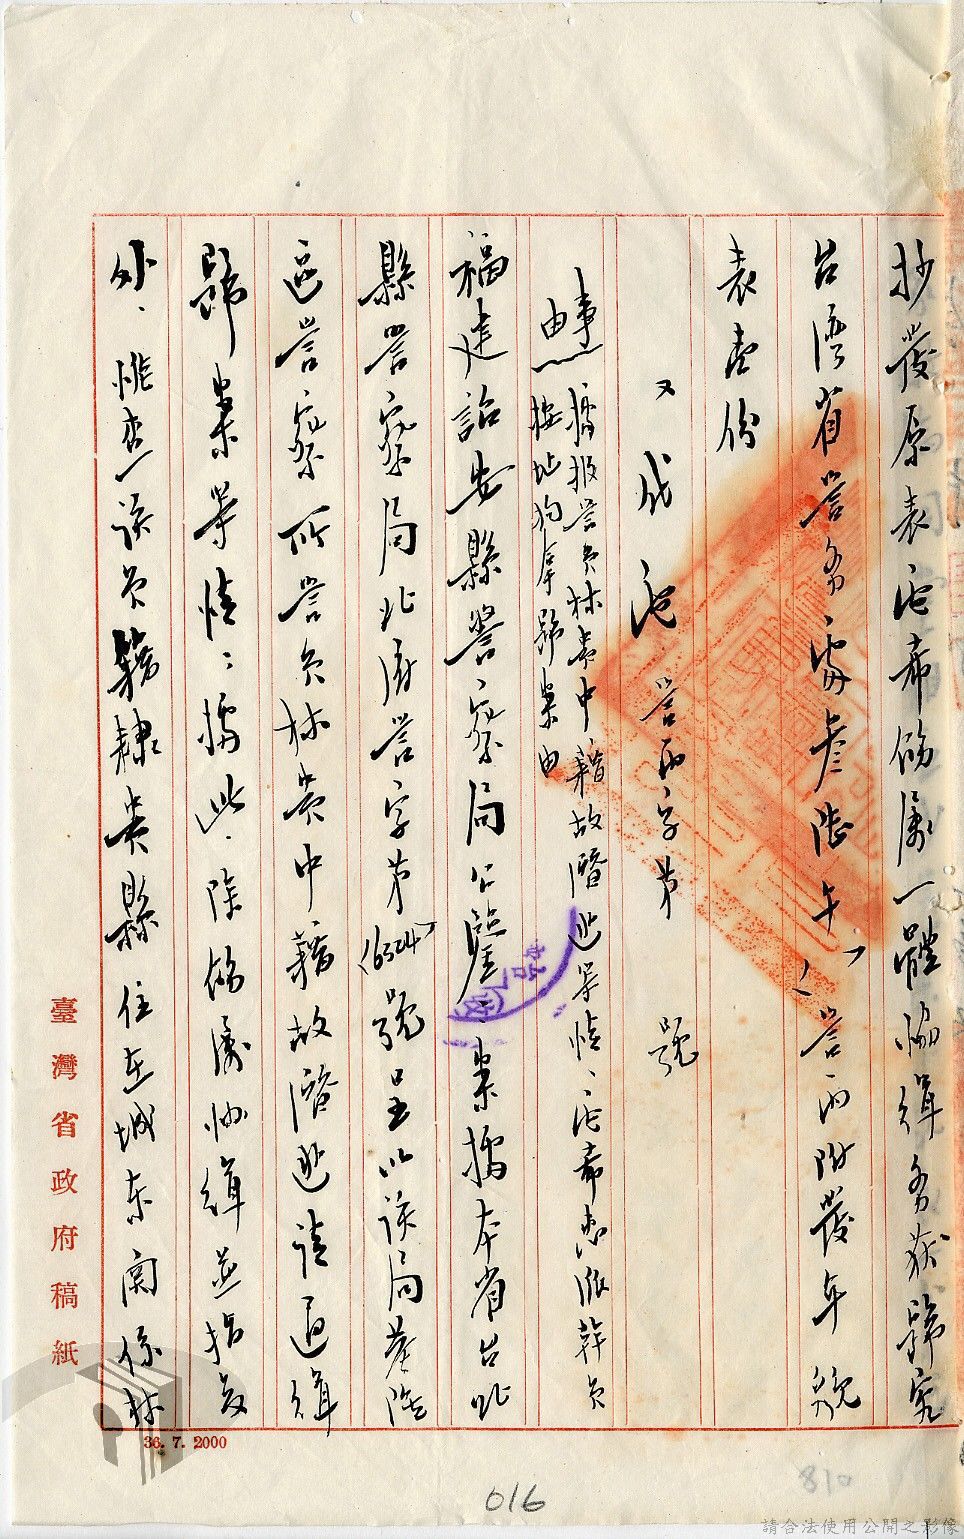 抄發原表一份希飭屬一體協緝務獲歸究
台灣省警務處叁陸午（ ）警丙附發年貌
表壹份
代電 警丙字第 號
事由 據報警員林貴中藉故潛逃等情電希惠派幹員
按址拘拿歸案由
福建詔安縣警察局公鑒：案據本省台北
縣警察局北府警字第（6524）號呈以該局基隆
區警察所警員林貴中藉故潛逃請通緝
歸案等情；據此，除飭屬協緝並指復
外，惟查該員籍隸貴縣住在城東關係林
臺灣省政府稿紙
36. 7. 2000
016
810
請合法使用公開之影像